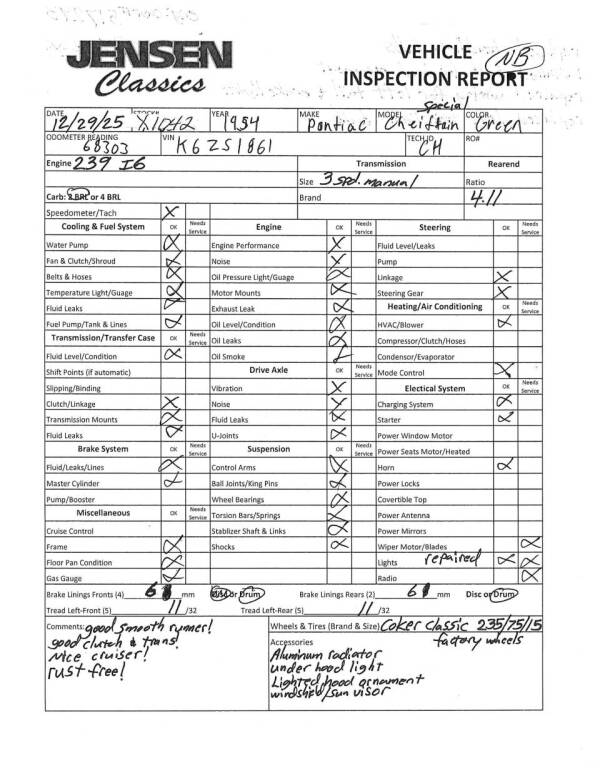 JENSEN
Classics
VEHICLE
INSPECTION REPORT
NB
DATE 12/29/25 STOCK# X1042 YEAR 1954 MAKE Pontiac MODEL Cheiftain special COLOR Green
ODOMETER READING 68303 VIN K6ZS1861 TECH ID CH RO#
Engine 239 I6 Transmission Rearend
Size 3 spd. manual Ratio 4.11
Carb: 2 BRL or 4 BRL Brand
Speedometer/Tach X
Cooling & Fuel System OK Needs Service Engine OK Needs Service Steering OK Needs Service
Water Pump Engine Performance X Fluid Level/Leaks
Fan & Clutch/Shroud Noise X Pump
Belts & Hoses Oil Pressure Light/Guage Linkage X
Temperature Light/Guage Motor Mounts Steering Gear X
Fluid Leaks Exhaust Leak Heating/Air Conditioning OK Needs Service
Fuel Pump/Tank & Lines Oil Level/Condition HVAC/Blower
Transmission/Transfer Case OK Needs Service Oil Leaks Compressor/Clutch/Hoses
Fluid Level/Condition Oil Smoke Condensor/Evaporator
Shift Points (if automatic) Drive Axle OK Needs Service Mode Control X
Slipping/Binding Vibration X Electical System OK Needs Service
Clutch/Linkage X Noise X Charging System
Transmission Mounts Fluid Leaks Starter
Fluid Leaks U-Joints Power Window Motor
Brake System OK Needs Service Suspension OK Needs Service Power Seats Motor/Heated
Fluid/Leaks/Lines Control Arms Horn
Master Cylinder Ball Joints/King Pins Power Locks
Pump/Booster Wheel Bearings Covertible Top
Miscellaneous OK Needs Service Torsion Bars/Springs Power Antenna
Cruise Control Stablizer Shaft & Links Power Mirrors
Frame Shocks Wiper Motor/Blades
Floor Pan Condition Lights repaired
Gas Gauge Radio
Brake Lining Fronts (4) 6 mm or Drum Brake Lining Rears (2) 6 mm Disc or Drum
Tread Left-Front (5) 11 /32 Tread Left-Rear (5) 11 /32
Comments: good smooth runner!
good clutch & trans!
Nice cruiser!
rust free!
Wheels & Tires (Brand & Size) Coker Classic 235/75/15
factory wheels
Accessories
Aluminum radiator
under hood light
Lighted hood ornament
windshield/sun visor